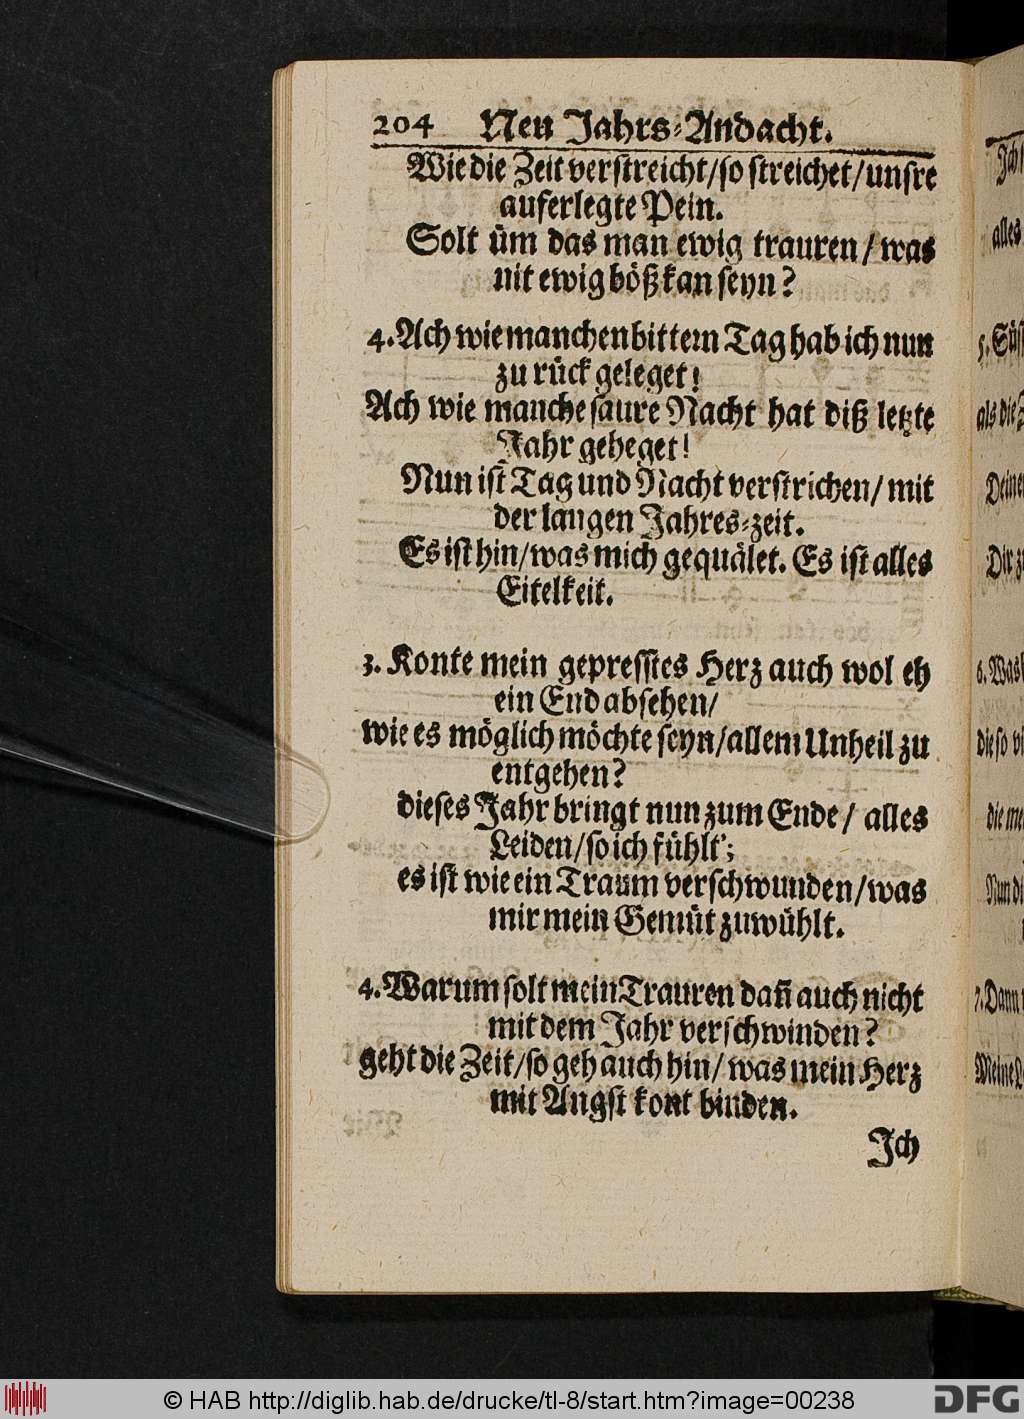 204 Neu Jahrs-Andacht.
Wie die Zeit verstreicht/so streichet/unsre
auferlegte Pein.
Solt üm das man ewig trauren/was
nit ewig böß kan seyn?
4. Ach wie manchen bittern Tag hab ich nun
zu rück geleget!
Ach wie manche saure Nacht hat diß letzte
Jahr geheget!
Nun ist Tag und Nacht verstrichen/mit
der langen Jahres-zeit.
Es ist hin/was mich gequälet. Es ist alles
Eitelkeit.
3. Konte mein gepresstes Herz auch wol eh
ein End absehen/
wie es möglich möchte seyn/allem Unheil zu
entgehen?
dieses Jahr bringt nun zum Ende/ alles
Leiden/so ich fühlt';
es ist wie ein Traum verschwunden/was
mir mein Gemüt zuwühlt.
4. Warum solt mein Trauren dañ auch nicht
mit dem Jahr verschwinden?
geht die Zeit/so geh auch hin/was mein Herz
mit Angst kont binden.
Ich
alles
5. Süs
als die
Deine
Dir z
6. Was
die so vi
die me
Nun di
7. Dann
Meine
© HAB http://diglib.hab.de/drucke/tl-8/start.htm?image=00238
DFG